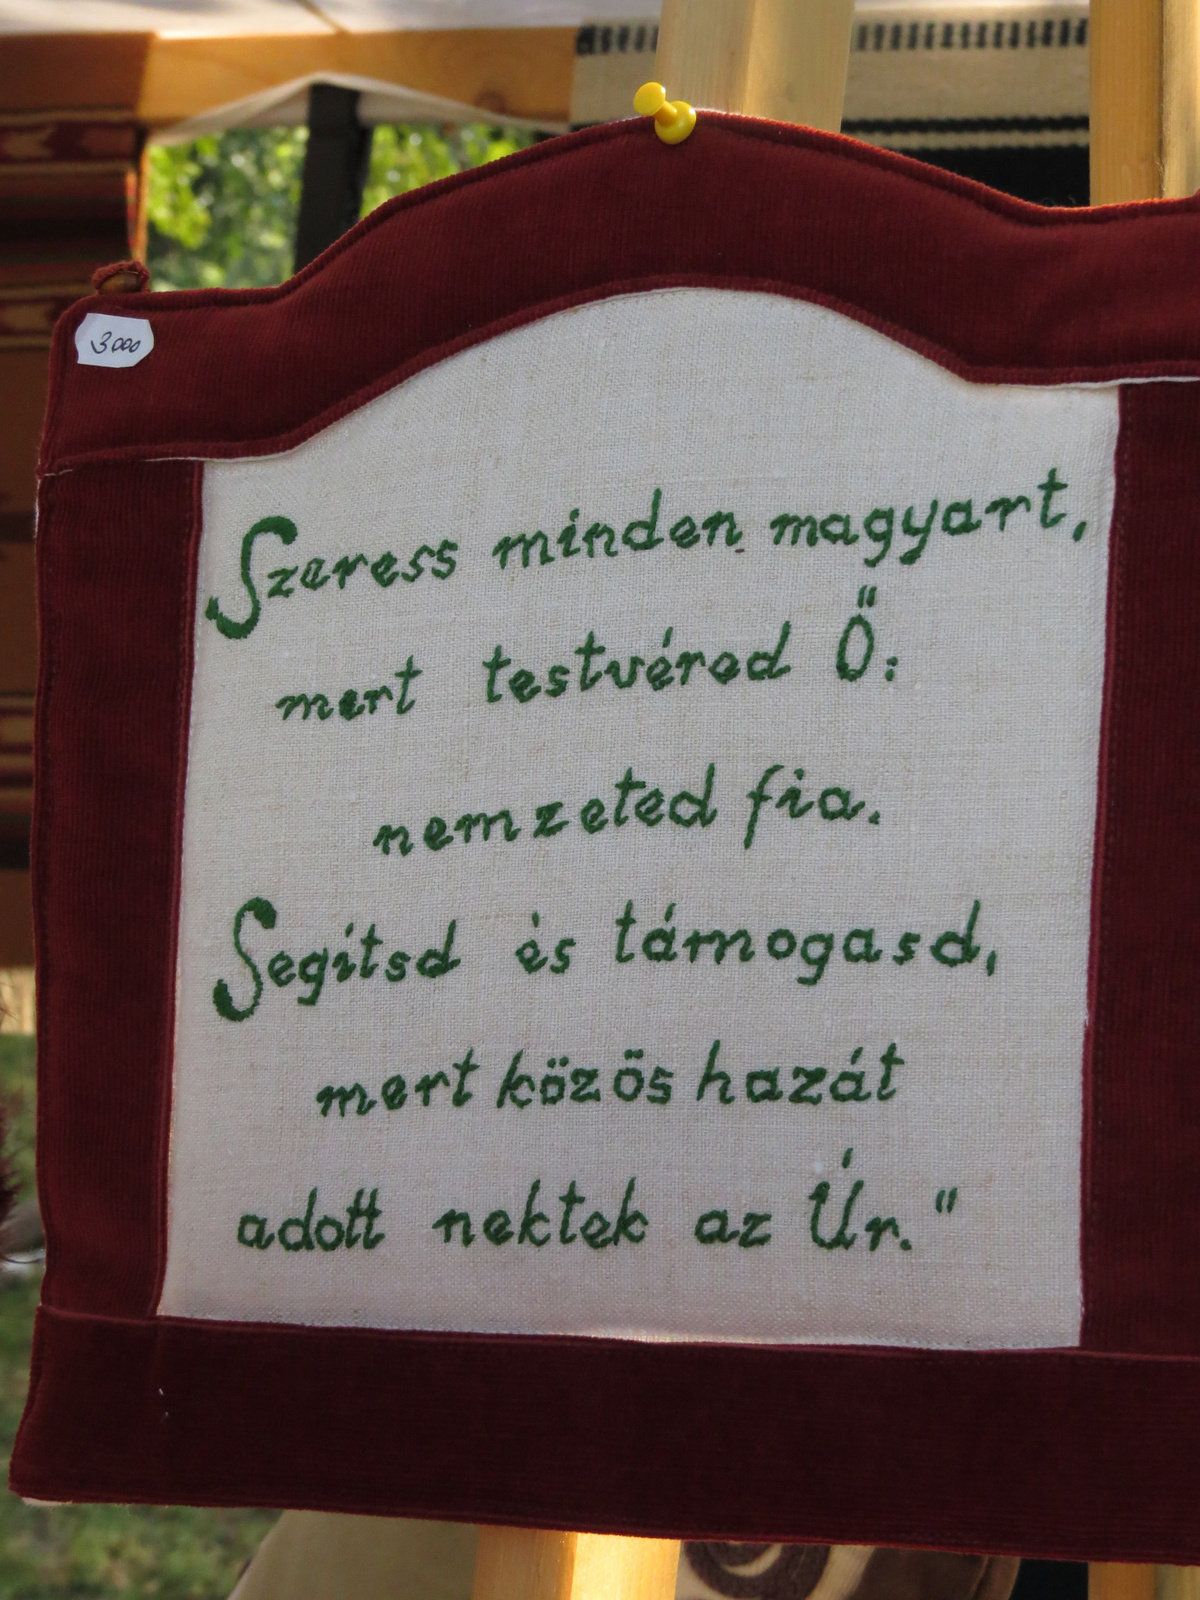 3000
Szeress minden magyart,
mert testvéred Ő:
nemzeted fia.
Segítsd és támogasd,
mert közös hazát
adott nektek az Úr."